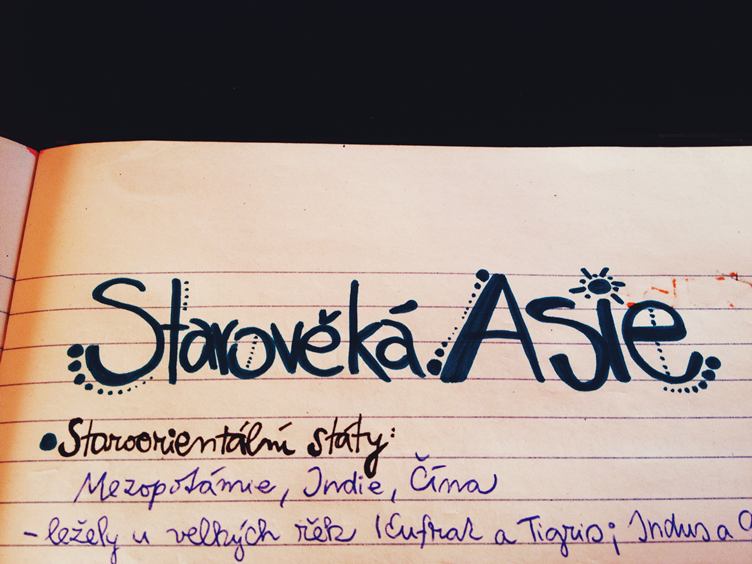 Starověká Asie
Staroorientální státy:
Mezopotámie, Indie, Čína
- ležely u velkých řek (Eufrat a Tigris; Indus a